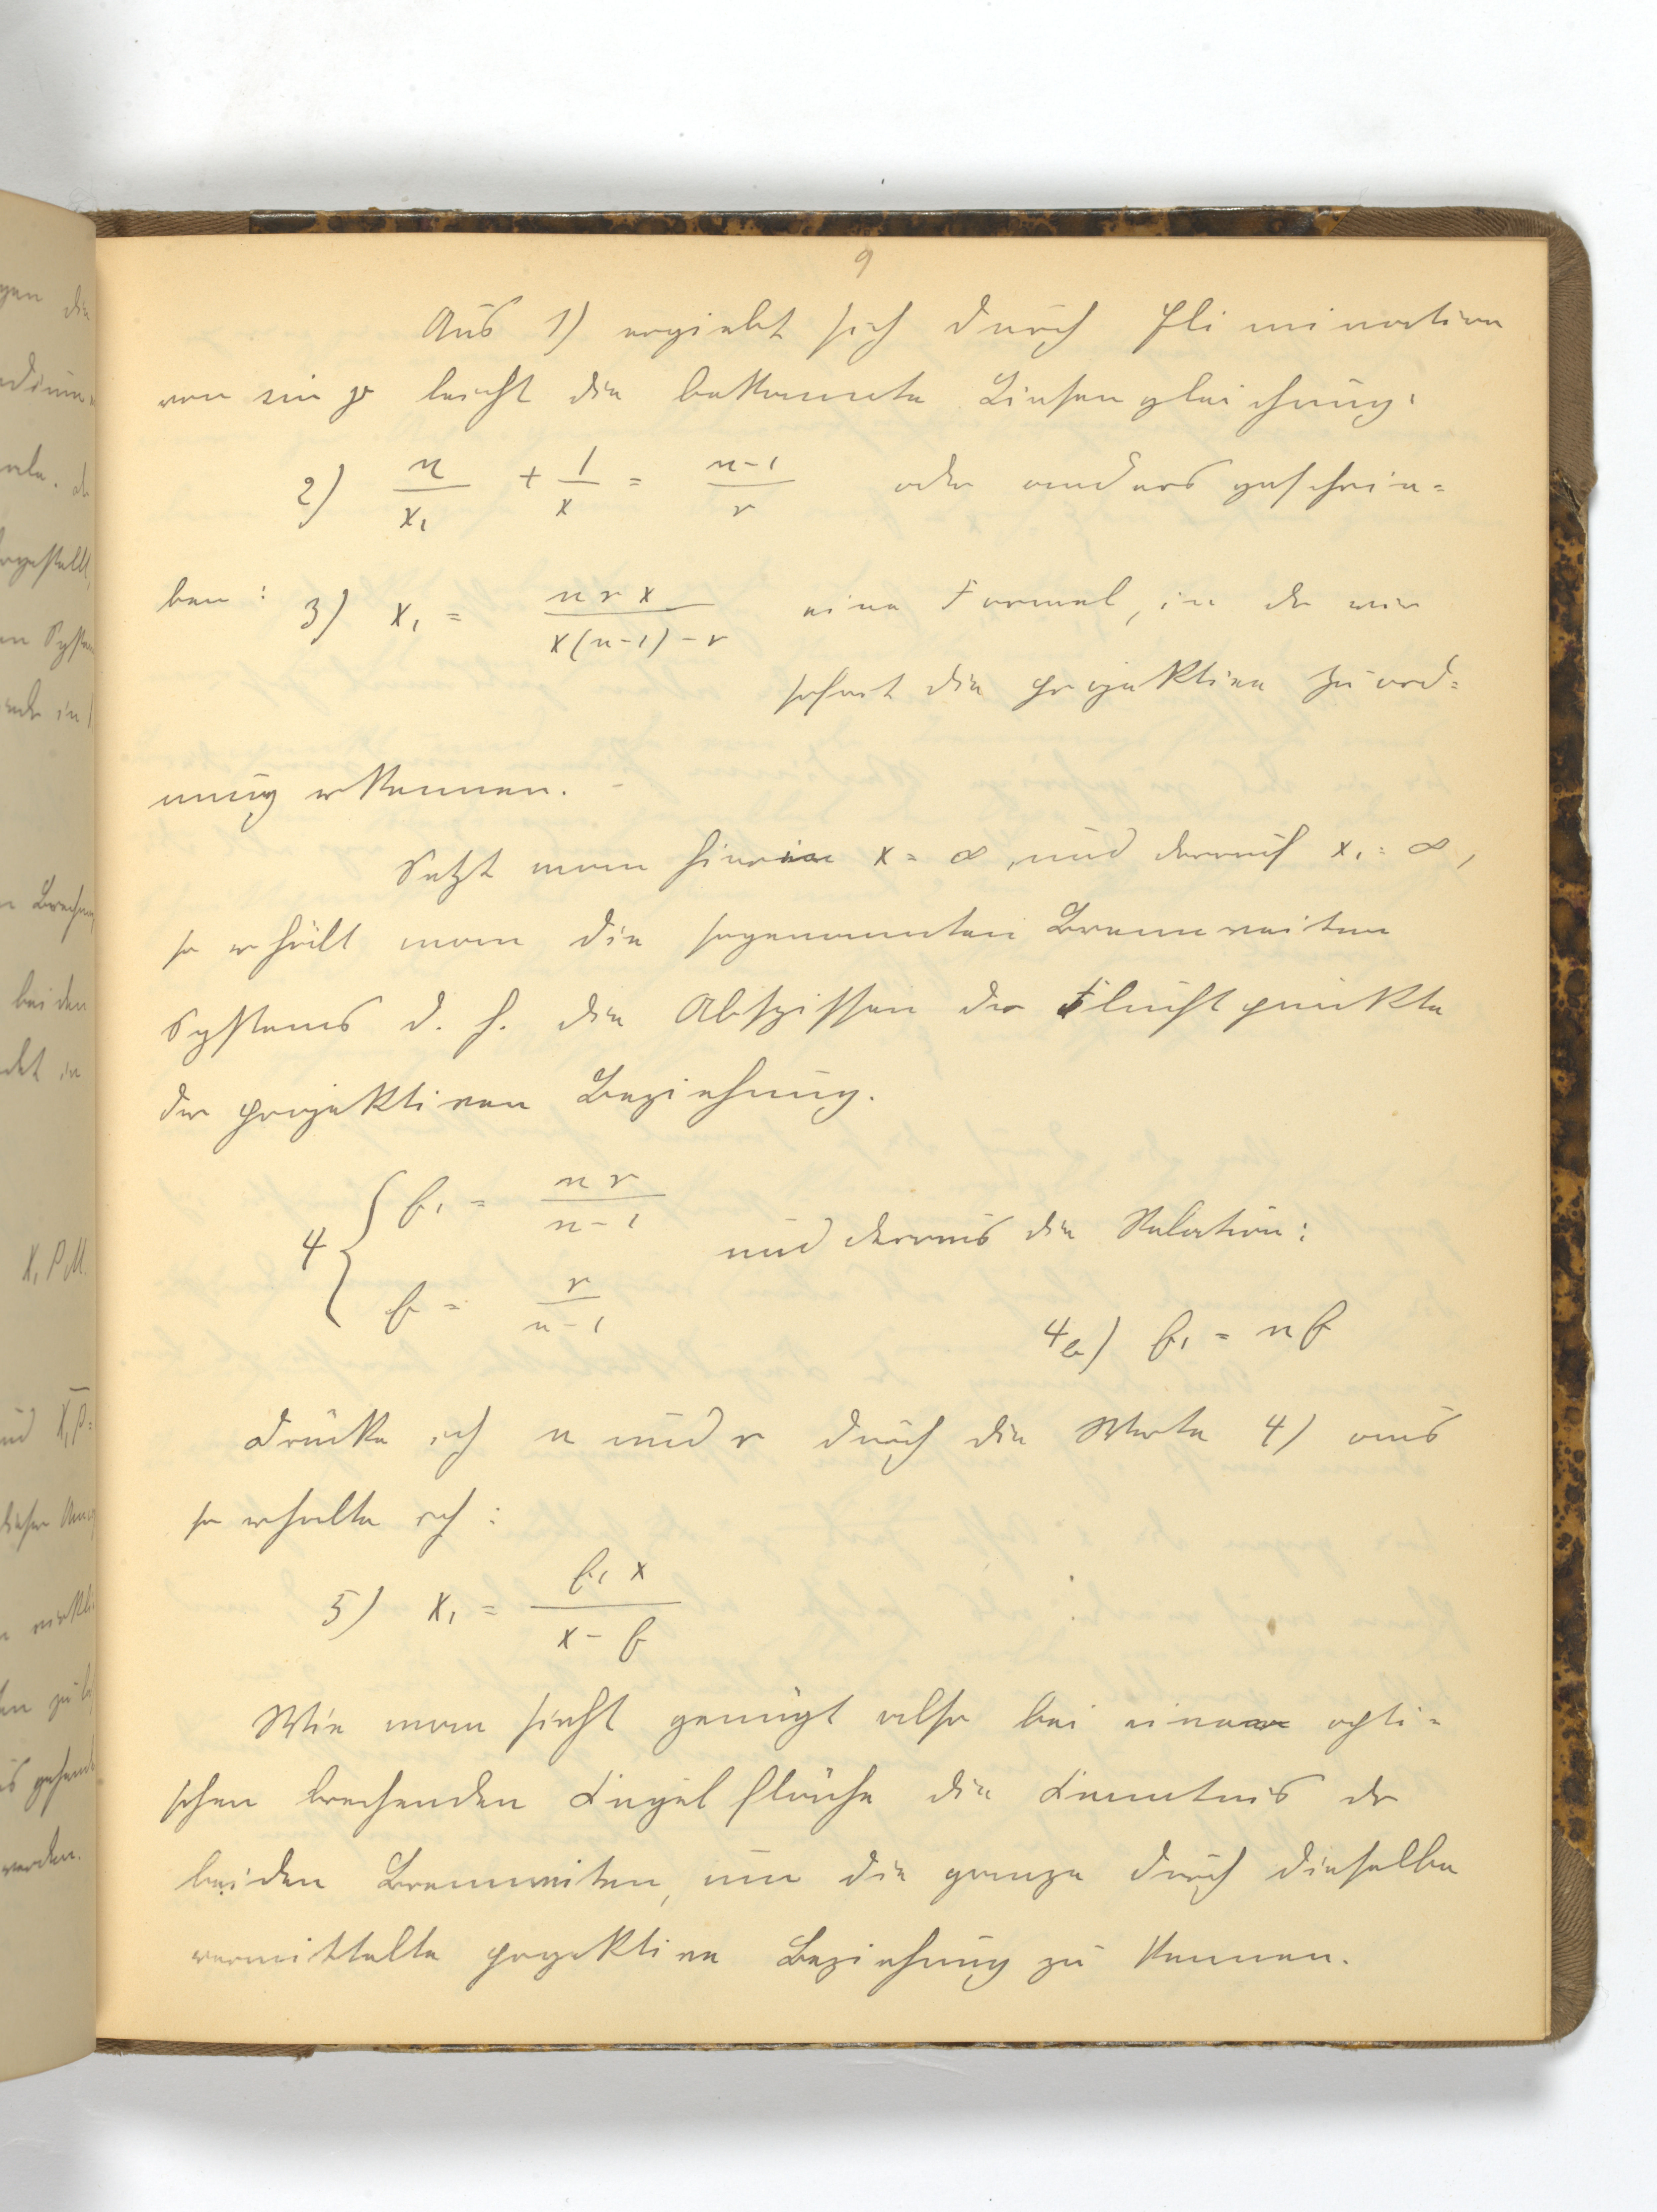 9
Aus 1) ergiebt sich durch Elimination
von sin φ leicht die bekannte Linsengleichung:
2) n/x₁ + 1/x = n-1/r oder anders geschrie=
ben: 3) x₁ = nrx/x(n-1)-r eine Formel, in der wir
sofort die projektive Zuord=
nung erkennen.
Setzt man hierin x = ∞, und darauf x₁ = ∞,
so erhält man die sogenannten Brennweiten
Systems d. h. die Abszissen der Fluchtpunkte
der projektiven Beziehung.
4 { f₁ = nr/n-1
und daraus die Relation:
f = r/n-1
4a) f₁ = nf
Drücke ich n und r durch die Werte 4) aus
so erhalte ich:
5) x₁ = f₁x/x-f
Wie man sieht genügt also bei einer opti=
schen brechenden Kugelfläche die Kenntnis der
beiden Brennweiten, um die ganze durch dieselbe
vermittelte projektive Beziehung zu kennen.
gen die
Brechung
bei den
X₁PM.
werden.